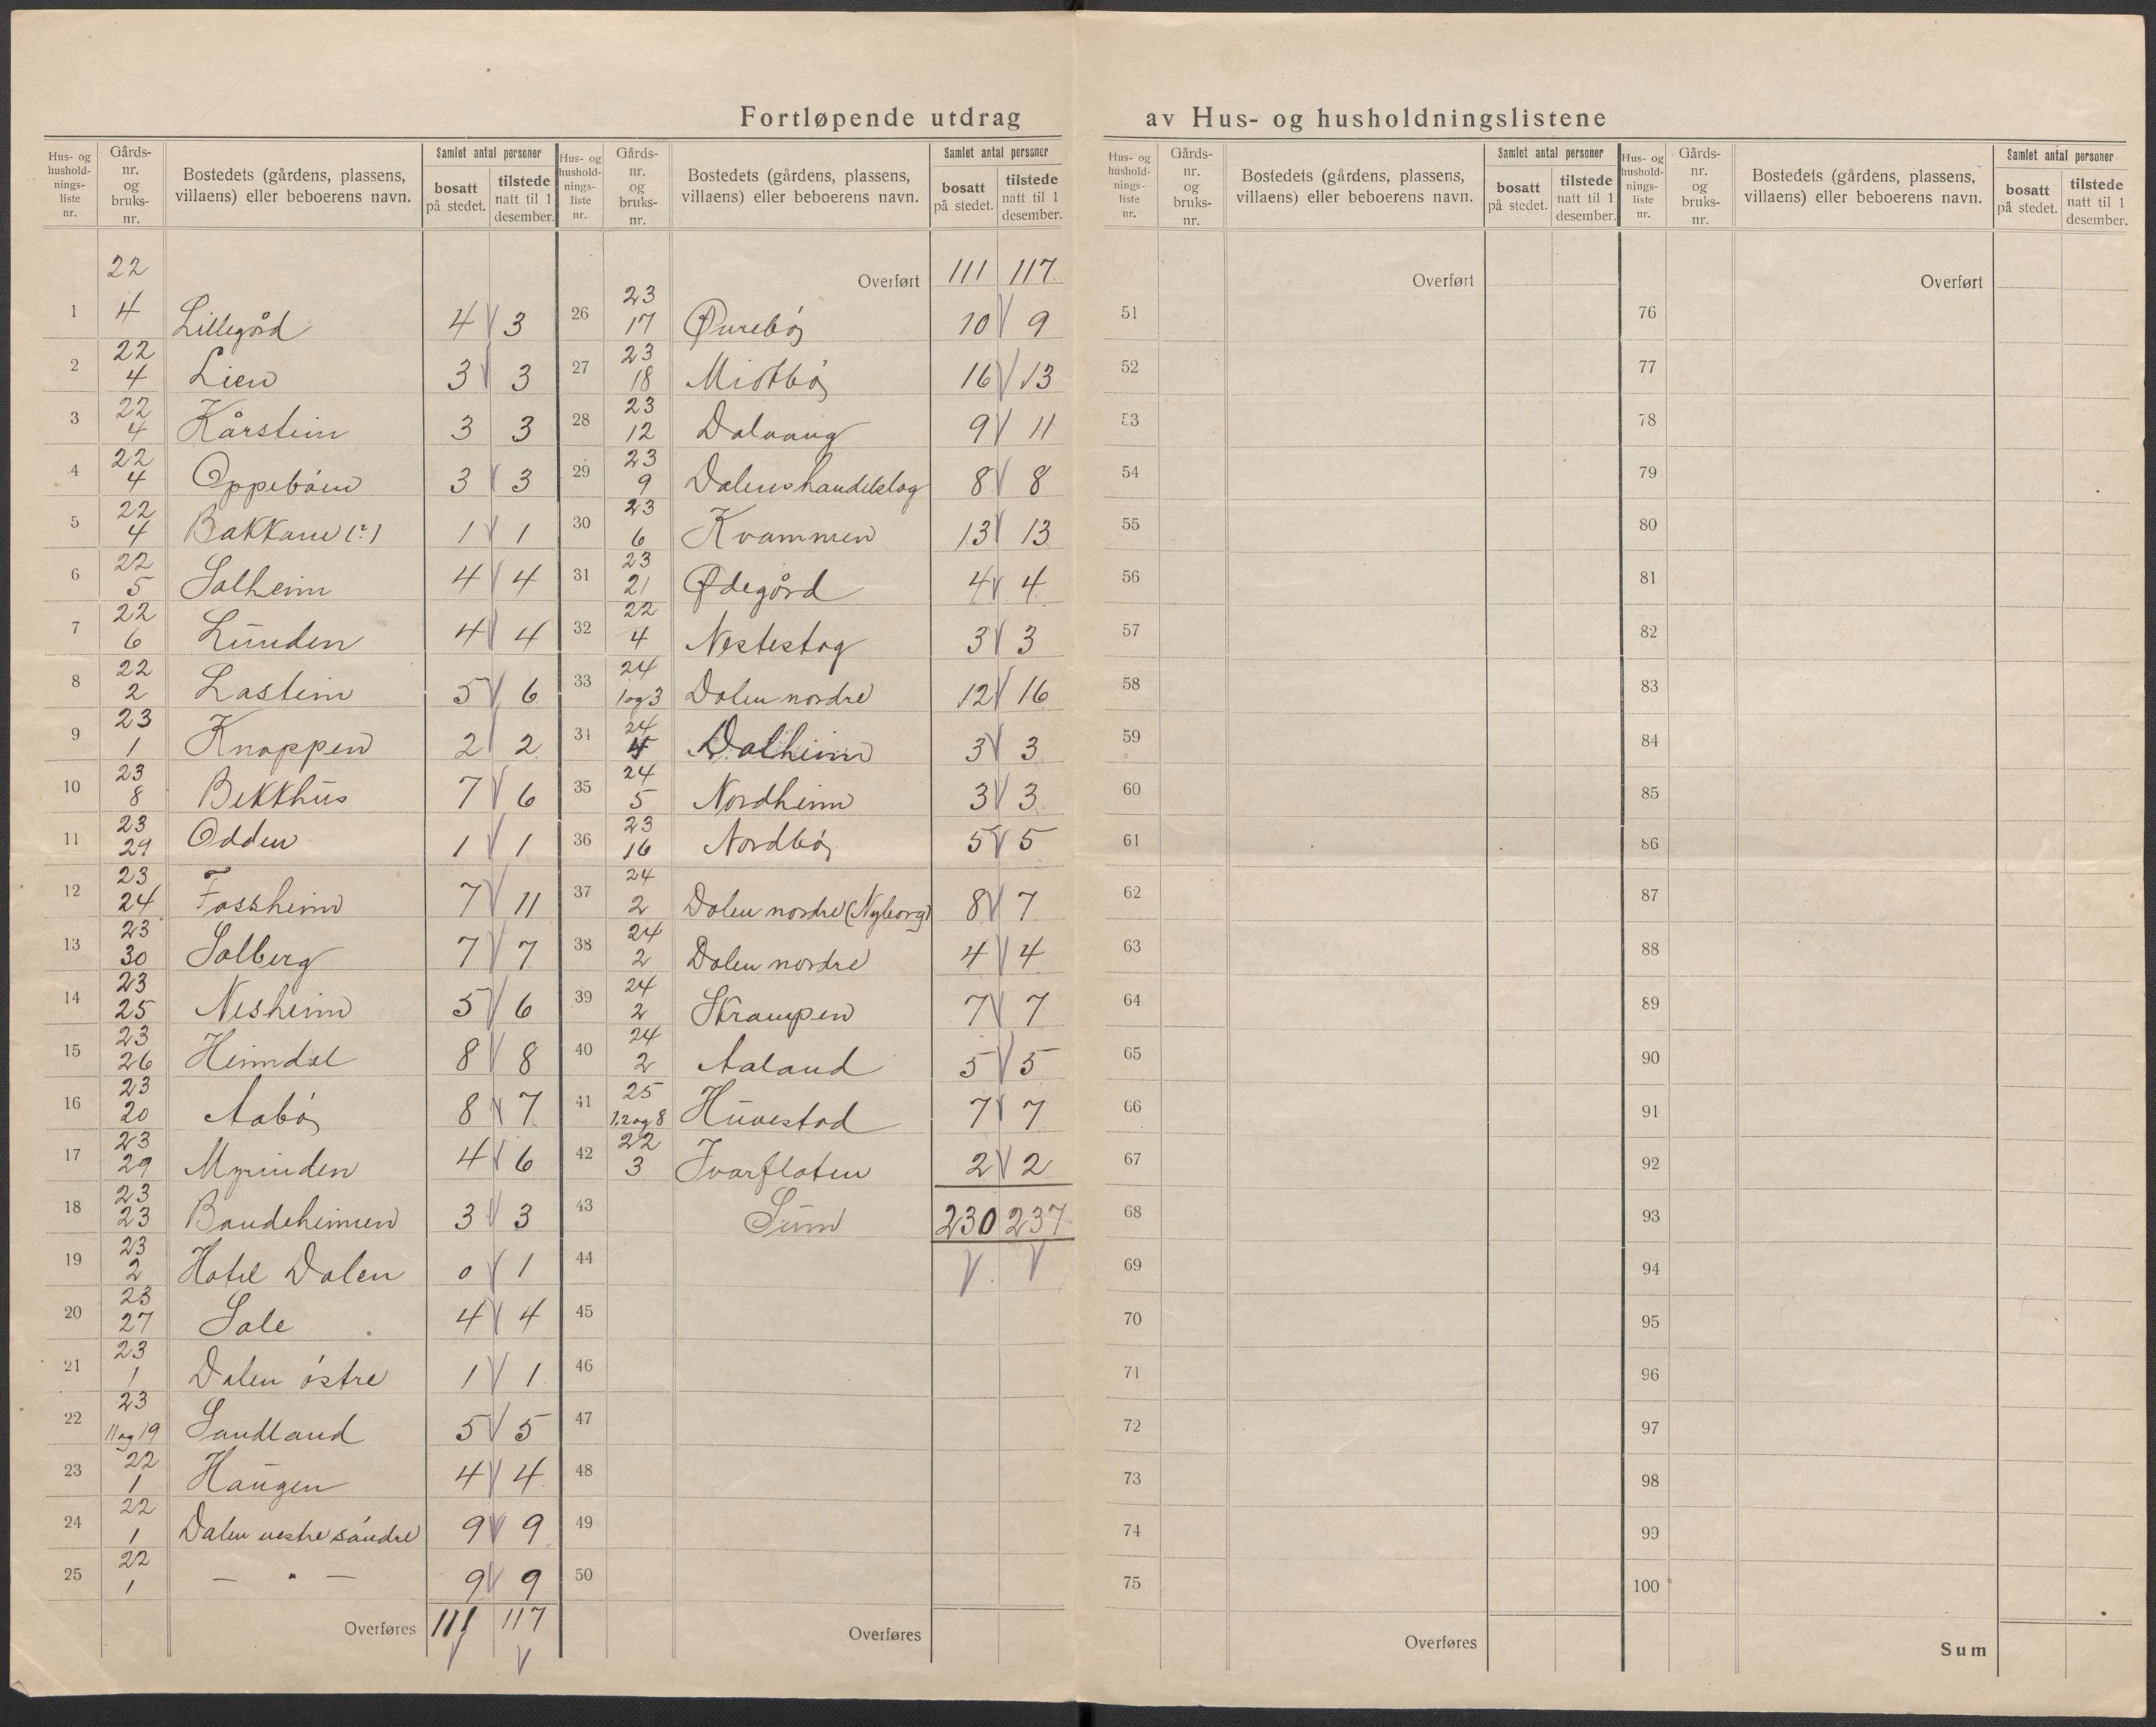 Fortløpende utdrag av Hus- og husholdningslistene
Hus- og hushold-nings-liste nr. Gårds-nr. og bruks-nr. Bostedets (gårdens, plassens, villaens) eller beboerens navn. Samlet antal personer bosatt på stedet. tilstede natt til 1 desember.
22
1 4 Lillegård 4 3
2 22 4 Lien 3 3
3 22 4 Kårstein 3 3
4 22 4 Oppebøen 3 3
5 22 4 Bakkane 1 1
6 22 5 Solheim 4 4
7 22 6 Lunden 4 4
8 22 2 Lastein 5 6
9 23 1 Knappen 2 2
10 23 8 Bekkhus 7 6
11 23 29 Odden 1 1
12 23 24 Fossheim 7 11
13 23 30 Solberg 7 7
14 23 25 Nesheim 5 6
15 23 26 Heimdal 8 8
16 23 20 Aabø 8 7
17 23 29 Myrinden 4 6
18 23 23 Bondeheimen 3 3
19 23 2 Hotel Dalen 0 1
20 23 27 Sole 4 4
21 23 1 Dalen østre 1 1
22 23 11 og 19 Sandland 5 5
23 22 1 Haugen 4 4
24 22 1 Dalen vestre søndre 9 9
25 22 1 — " — 9 9
Overføres 111 117
Hus- og hushold-nings-liste nr. Gårds-nr. og bruks-nr. Bostedets (gårdens, plassens, villaens) eller beboerens navn. Samlet antal personer bosatt på stedet. tilstede natt til 1 desember.
Overført 111 117
26 23 17 Øvrebø 10 9
27 23 18 Midtbø 16 13
28 23 12 Dalvang 9 11
29 23 9 Dalens handelslag 8 8
30 23 6 Kvammen 13 13
31 23 21 Ødegård 4 4
32 22 4 Nestestog 3 3
33 24 1 og 3 Dalen nordre 12 16
34 24 4 Dalheim 3 3
35 24 5 Nordheim 3 3
36 23 16 Nordbø 5 5
37 24 2 Dalen nordre (Nyborg) 8 7
38 24 2 Dalen nordre 4 4
39 24 2 Skrampen 7 7
40 24 2 Aaland 5 5
41 25 1,2 og 8 Huvestad 7 7
42 22 3 Ivarflaten 2 2
43 Sum 230 237
44
45
46
47
48
49
50
Overføres
Hus- og hushold-nings-liste nr. Gårds-nr. og bruks-nr. Bostedets (gårdens, plassens, villaens) eller beboerens navn. Samlet antal personer bosatt på stedet. tilstede natt til 1 desember.
Overført
51
52
53
54
55
56
57
58
59
60
61
62
63
64
65
66
67
68
69
70
71
72
73
74
75
Overføres
Hus- og hushold-nings-liste nr. Gårds-nr. og bruks-nr. Bostedets (gårdens, plassens, villaens) eller beboerens navn. Samlet antal personer bosatt på stedet. tilstede natt til 1 desember.
Overført
76
77
78
79
80
81
82
83
84
85
86
87
88
89
90
91
92
93
94
95
96
97
98
99
100
Sum